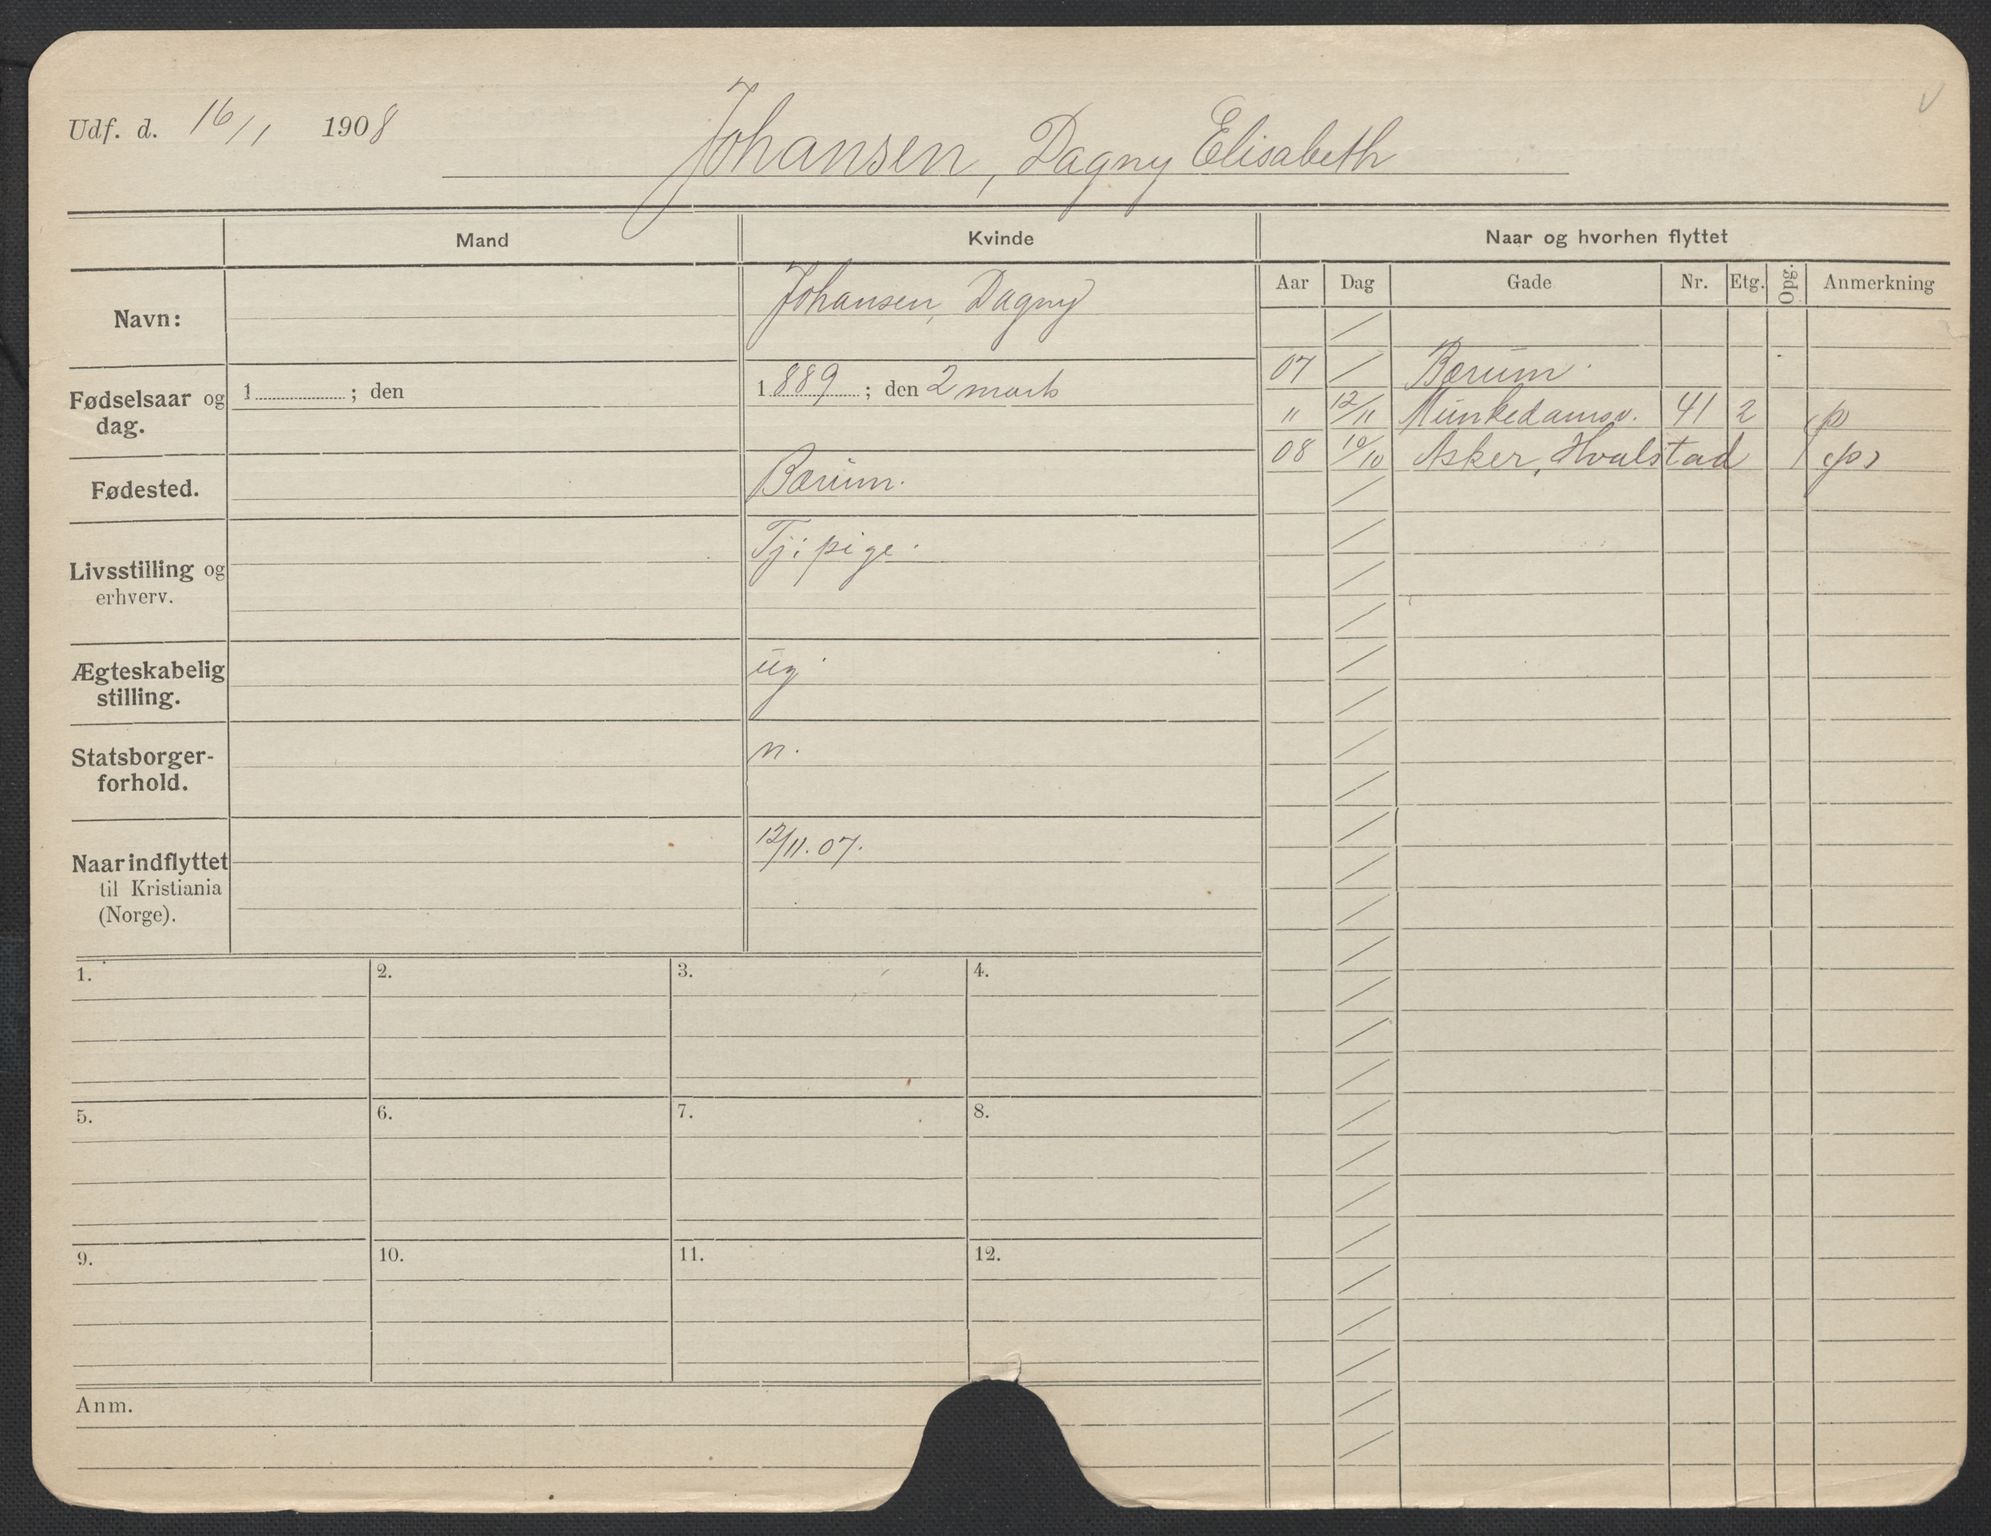 Udf. d. 16/1 1908
Johansen, Dagny Elisabeth
Mand Kvinde Naar og hvorhen flyttet
Aar Dag Gade Nr. Etg. Opg. Anmerkning
Navn: Johansen, Dagny
07 Bærum.
Fødselsaar og dag. 1 ; den 1889 ; den 2 marts
" 12/11 Munkedamsv. 41 2 p
08 10/10 Asker, Hvalstad (p)
Fødested. Bærum.
Livsstilling og erhverv. Tj: pige.
Ægteskabelig stilling. ug
Statsborger-
forhold. n.
Naar indflyttet
til Kristiania
(Norge). 12/11. 07.
1. 2. 3. 4.
5. 6. 7. 8.
9. 10. 11. 12.
Anm.